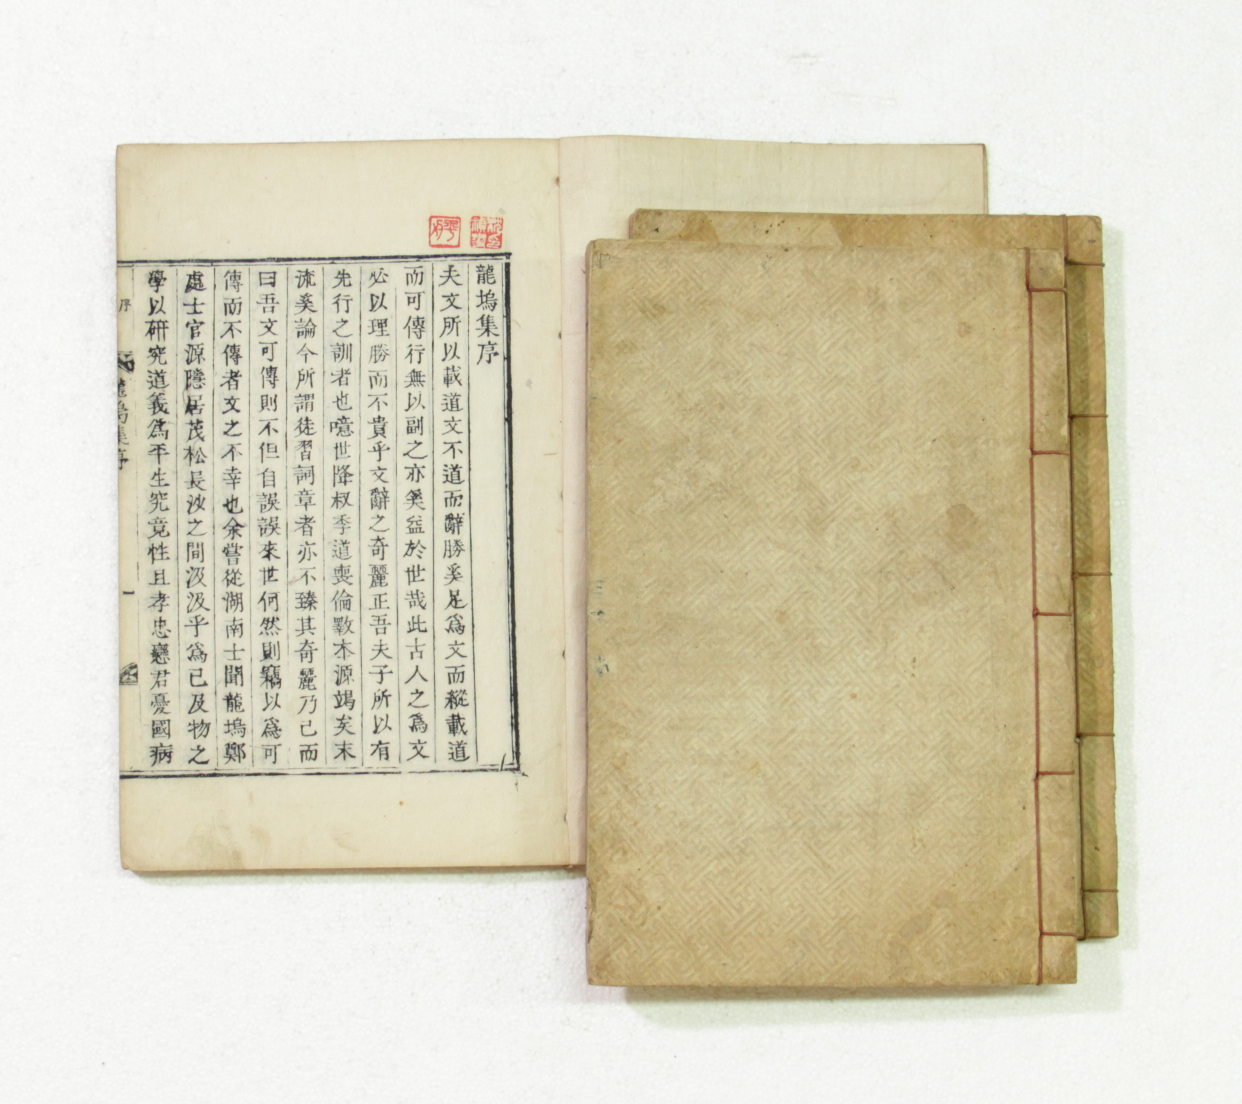 龍塢集序
夫文所以載道文不道而辭勝奚足爲文而縱載道
而可傳行無以副之亦奚益於世哉此古人之爲文
必以理勝而不貴乎文辭之奇麗正吾夫子所以有
先行之訓者也噫世降叔季道喪倫斁本源竭矣末
流奚論今所謂徒習詞章者亦不臻其奇麗乃己而
曰吾文可傳則不但自誤誤來世何然則竊以爲可
傳而不傳者文之不幸也余嘗從湖南士聞龍塢鄭
處士官源隱居茂松長沙之間汲汲乎爲已及物之
學以硏究道義爲平生究竟性且孝忠戀君憂國病
序
龍塢集序
一